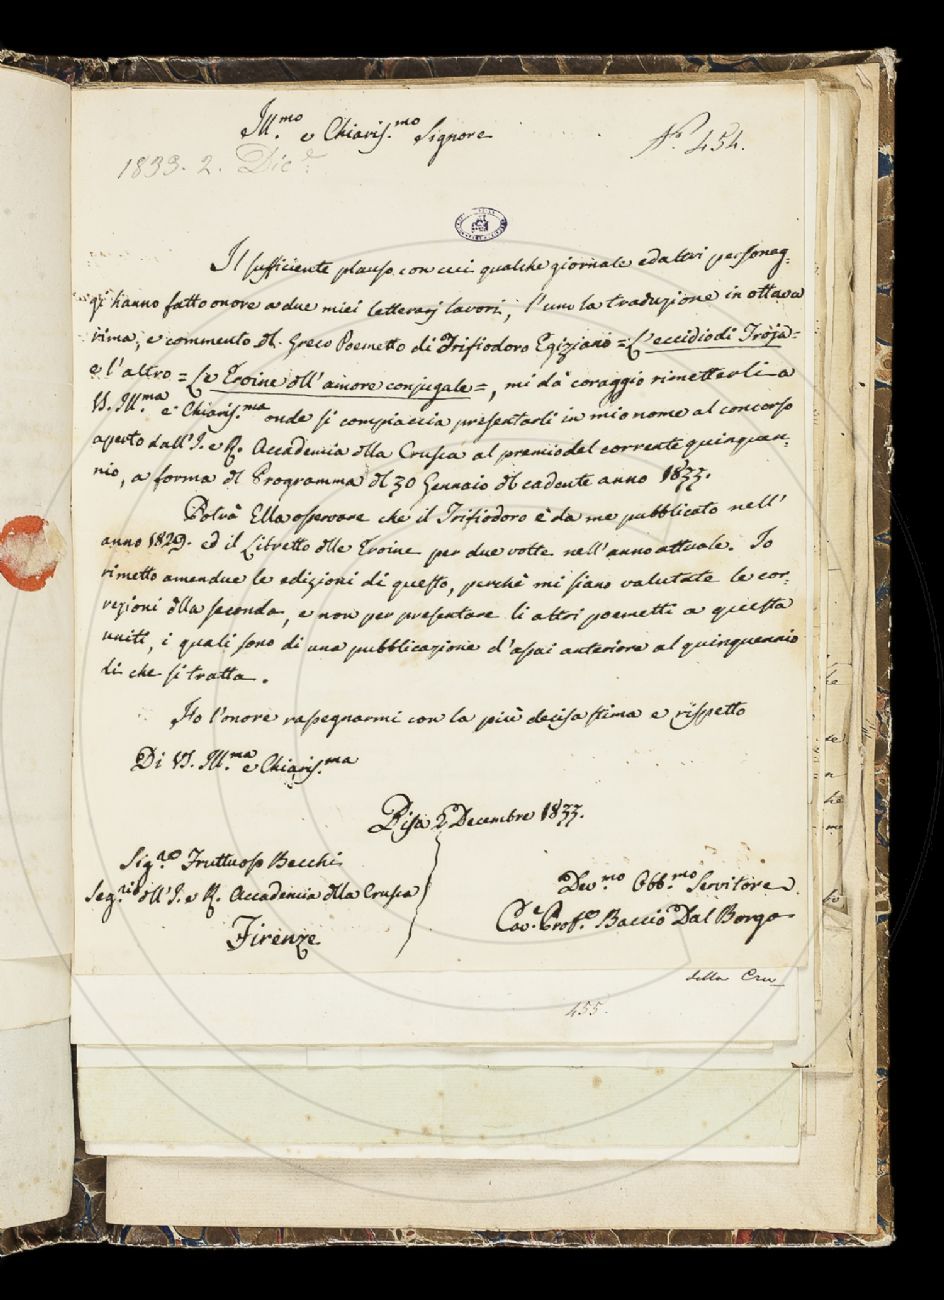 Ill.mo e Chiaris.mo Signore
N.o 454.
1833. 2. Dic.e
Il sufficiente plauso con cui qualche giornale ed altri personag-
gi hanno fatto onore a due miei letterarj lavori, l'uno la traduzione in ottava
rima, e commento del Greco Poemetto di Trifiodoro Egiziano = L'eccidio di Troja =
e l'altro = Le Eroine dell'amore conjugale =, mi dà coraggio rimetterli a
V.S. Ill.ma e Chiaris.ma onde si compiaccia presentarli in mio nome al concorso
aperto dall'I. e R. Accademia della Crusca al premio del corrente quinquen-
nio, a forma del Programma del 30 Gennaio del cadente anno 1833.
Potrà Ella osservare che il Trifiodoro è da me pubblicato nell'
anno 1829. ed il Libretto delle Eroine per due volte nell'anno attuale. Io
rimetto amendue le edizioni di questo, perchè mi siano valutate le cor-
rezioni della seconda, e non per presentare li altri poemetti a questa
uniti, i quali sono di una pubblicazione d'assai anteriore al quinquennio
di che si tratta.
Ho l'onore rassegnarmi con la più decisa stima e rispetto
Di V.S. Ill.ma e Chiaris.ma
Pisa 2 Decembre 1833.
Sig.re Fruttuoso Becchi
Seg.rio dell'I. e R. Accademia della Crusca
Firenze
Dev.mo Obb.mo Servitore
Cav.e Prof.e Baccio Dal Borgo
della Cru_
455.